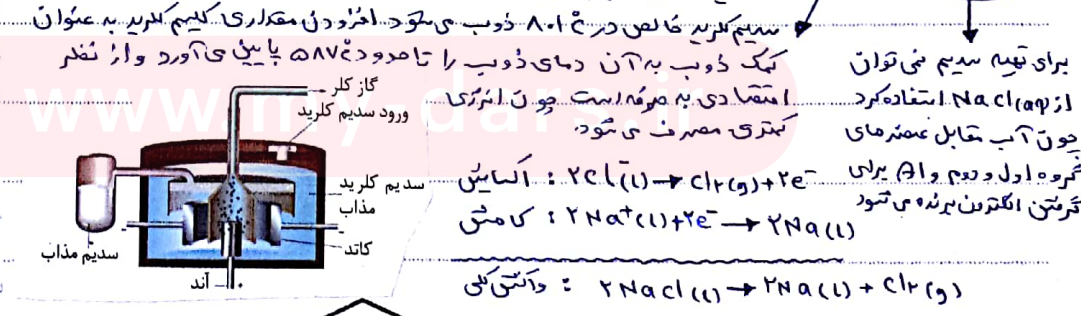 سدیم کلرید خالص در ۸۰۱°C ذوب می شود. افزودن مقداری کلسیم کلرید به عنوان
کمک ذوب به آن دمای ذوب را تا حدود ۵۸۷°C پایین می آورد و از نظر
اقتصادی به صرفه است چون انرژی
کمتری مصرف می شود.
برای تهیه سدیم نمی توان
از NaCl(aq) استفاده کرد
چون آب مقابل عنصرهای
گروه اول و دوم و Al برای
گرفتن الکترون برنده می شود
www.my-dars.ir
گاز کلر
ورود سدیم کلرید
سدیم کلرید
مذاب
کاتد
آند
سدیم مذاب
اکسایش : ۲Cl⁻(l) → Cl₂(g) + ۲e⁻
کاهش : ۲Na⁺(l) + ۲e⁻ → ۲Na(l)
واکنش کلی : ۲NaCl(l) → ۲Na(l) + Cl₂(g)